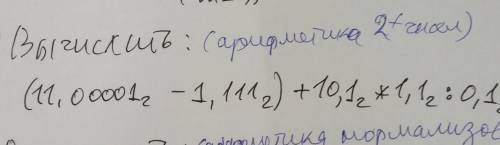 Вычислить: (арифметика 2ⁿ чисел)
(11,00001₂ - 1,111₂) + 10,1₂ * 1,1₂ : 0,1₂
арифметика нормализов